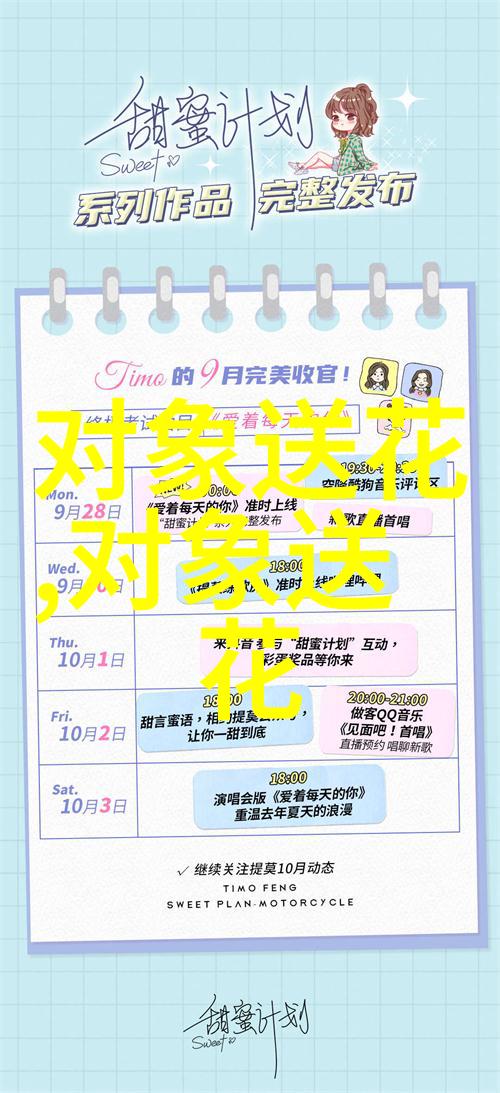 甜蜜计划
Sweet
系列作品 完整发布
Timo的9月完美收官!
《爱着每天的你》
对象送花
,对象送
花
Mon.
9月28日
《爱着每天的你》准时上线
19:30-
空降酷狗音乐评论区
直播首唱
Wed.
9月
18:00
准时
Thu.
10月1日
"甜蜜计划"互动,
彩蛋奖品等你来
Fri.
10月2日
18:00
甜言蜜语,
让你一甜到底
20:00-21:00
做客QQ音乐
《见面吧!首唱》
直播预约 唱聊新歌
Sat.
10月3日
18:00
演唱会版《爱着每天的你》
重温去年夏天的浪漫
✓ 继续关注提莫10月动态
TIMO FENG
SWEET PLAN·MOTORCYCLE
甜蜜计划
Sweet